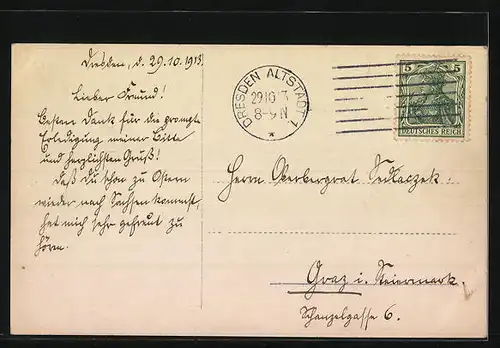 Dresden, d. 29.10.1913.
Lieber Freund!
Besten Dank für die prompte
Erledigung meiner Bitte
und herzlichsten Gruß!
Daß Du schon zu Ostern
wieder nach Sachsen kommst,
hat mich sehr gefreut zu
hören.
DRESDEN ALTSTADT 1
29 10 13
8-9 N
*
5 5
DEUTSCHES REICH
Herrn Oberbergrat Sedlaczek.
Graz i. Steiermark.
Schanzelgasse 6.